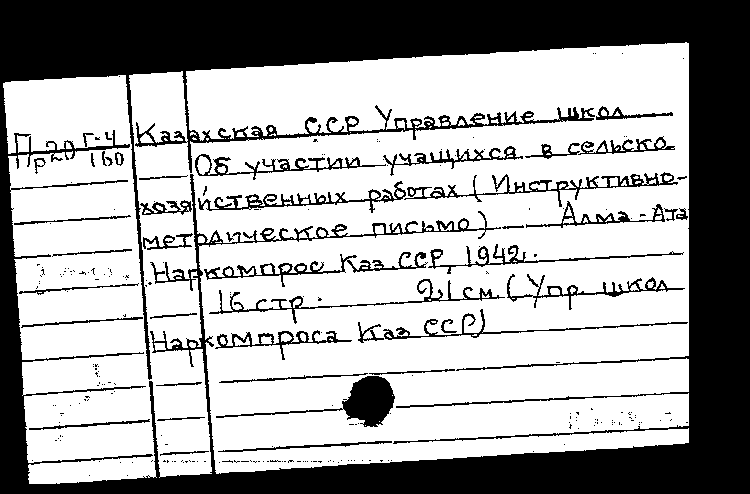 П Г-4 Казахская ССР Управление школ
Пр20 160 Об участии учащихся в сельско-
хозяйственных работах (Инструктивно-
методическое письмо) Алма-Ата
Наркомпрос Каз ССР, 1942.
16 стр. 21 см. (Упр. школ
Наркомпроса Каз ССР)